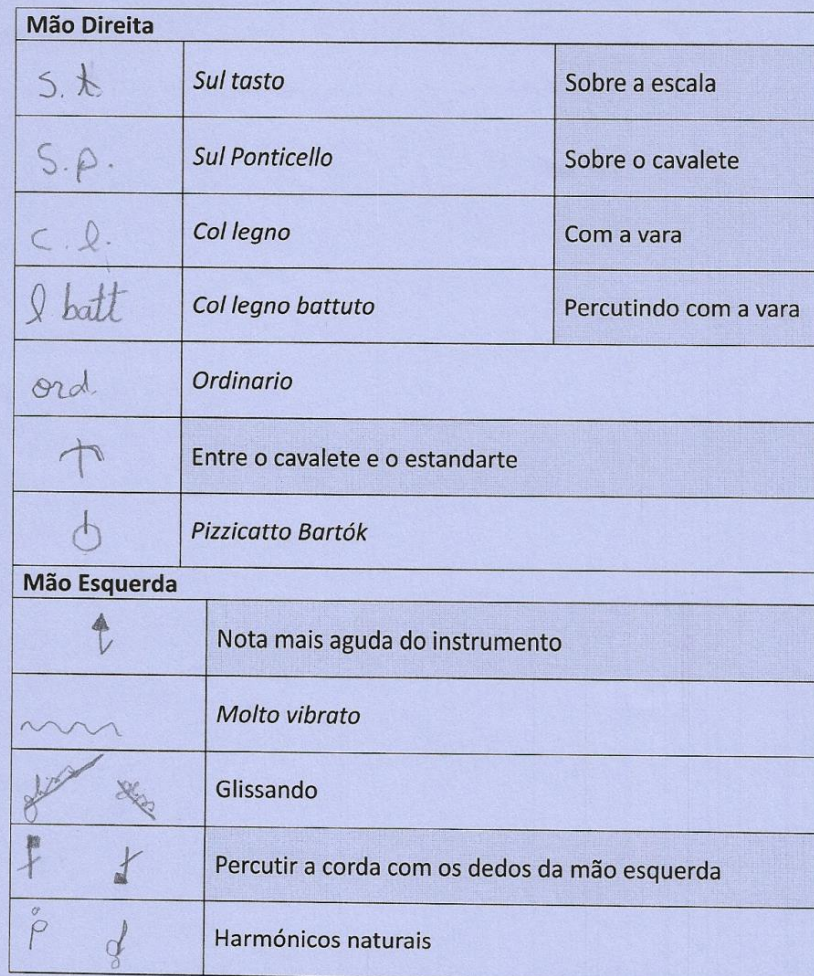 Mão Direita
s. t Sul tasto Sobre a escala
S. p. Sul Ponticello Sobre o cavalete
c. l. Col legno Com a vara
l batt Col legno battuto Percutindo com a vara
ord. Ordinario
Entre o cavalete e o estandarte
Pizzicatto Bartók
Mão Esquerda
Nota mais aguda do instrumento
Molto vibrato
gliss gliss Glissando
Percutir a corda com os dedos da mão esquerda
Harmónicos naturais